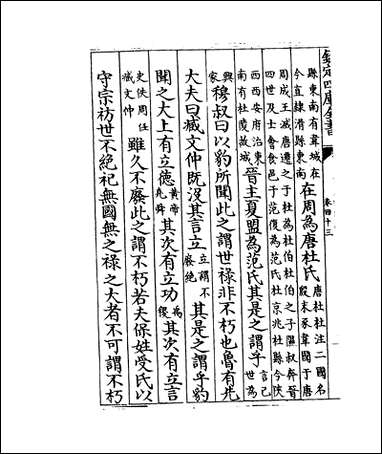 欽定四庫全書
卷四十三
縣東南有韋城在今直隸滑縣東南在周為唐杜氏唐杜杜注二國名殷末豕韋國于唐
周成王滅唐遷之于杜為杜伯杜伯之子隰叔奔晉四世及士會食邑于范復為范氏杜京兆杜縣今陝
西西安府治東南有杜陵故城晉主夏盟為范氏其是之謂乎言己世為
興家穆叔曰以豹所聞此之謂世祿非不朽也魯有先
大夫曰臧文仲既沒其言立立謂不廢絕其是之謂乎豹
聞之大上有立德黃帝堯舜其次有立功禹稷其次有立言
史佚周任臧文仲雖久不廢此之謂不朽若夫保姓受氏以
守宗祊世不絕祀無國無之祿之大者不可謂不朽